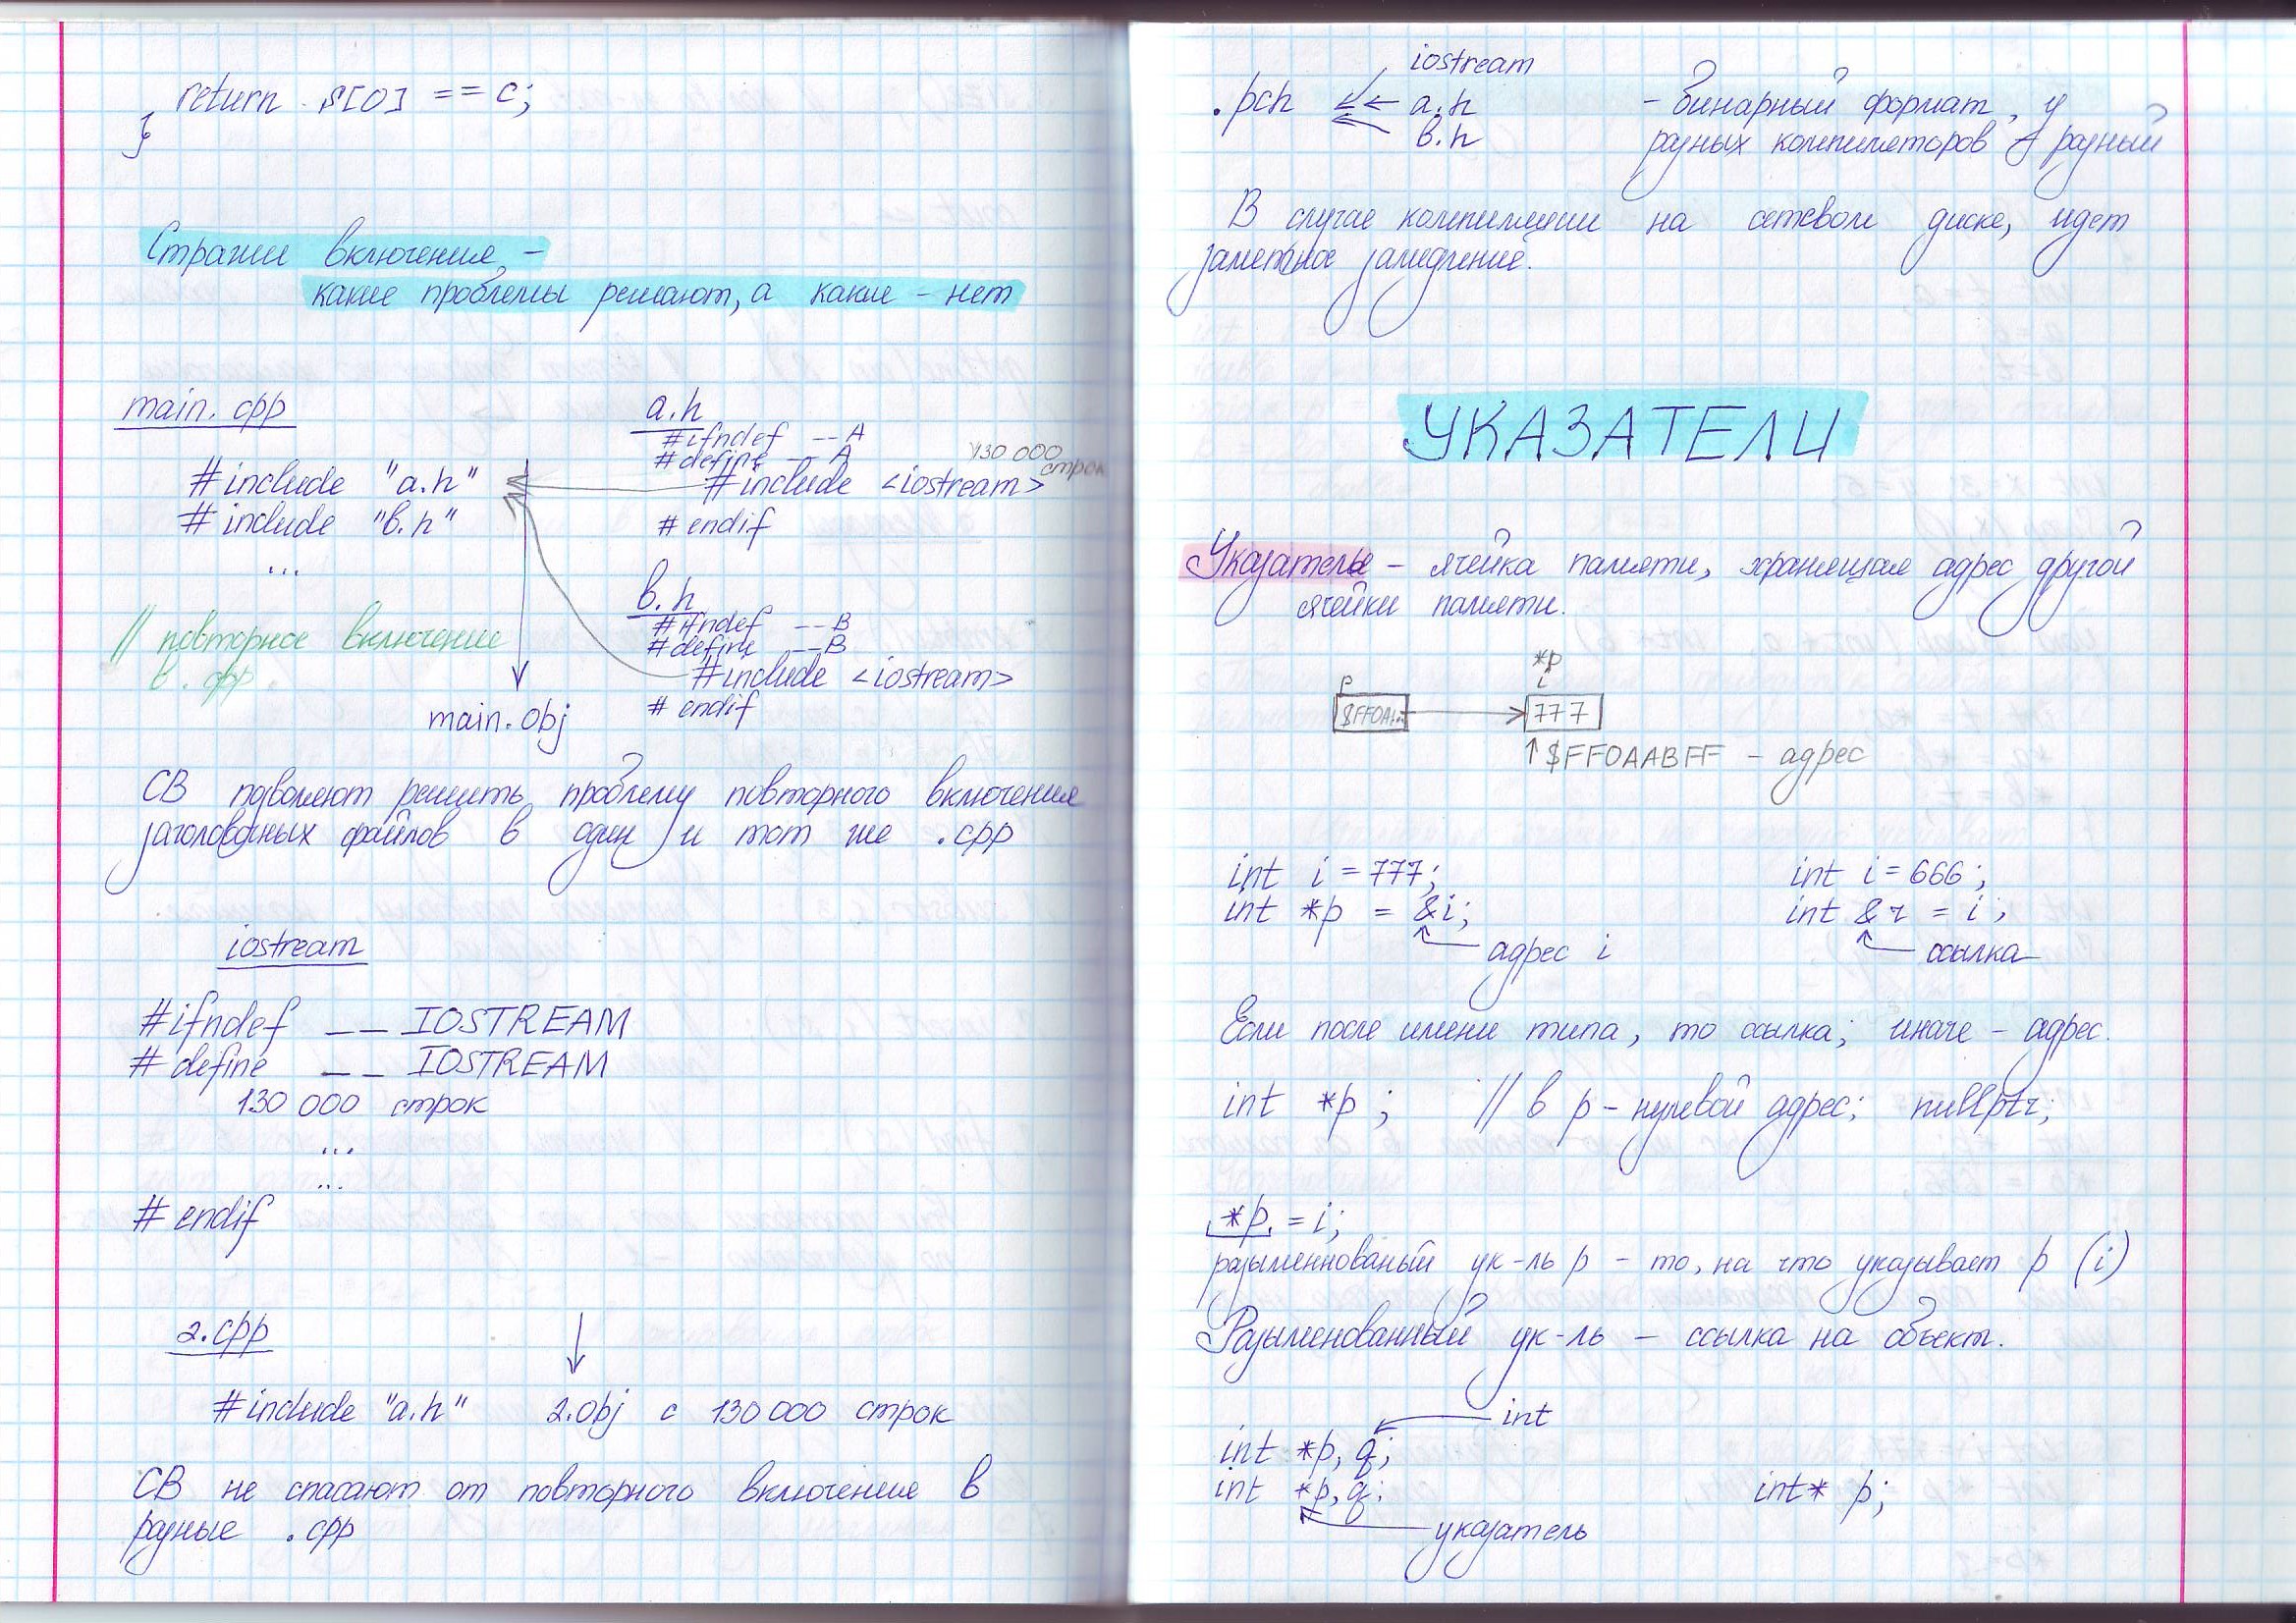 return s[0] == c;
}
Стражи включения –
какие проблемы решают, а какие – нет
main.cpp
#include "a.h"
#include "b.h"
...
// повторное включение
в .cpp
main.obj
a.h
#ifndef __A
#define __A
130 000 строк
#include <iostream>
#endif
b.h
#ifndef __B
#define __B
#include <iostream>
#endif
СВ позволяют решить проблему повторного включения
заголовочных файлов в один и тот же .cpp
iostream
#ifndef __IOSTREAM
#define __IOSTREAM
130 000 строк
...
...
#endif
2.cpp
#include "a.h" 2.obj с 130 000 строк
СВ не спасают от повторного включения в
разные .cpp
iostream
.pch a.h – бинарный формат, у
b.h разных компиляторов – разный
В случае компиляции на сетевом диске, идет
заметное замедление.
УКАЗАТЕЛИ
Указатель – ячейка памяти, хранящая адрес другой
ячейки памяти.
*p
p i
$FF0A... 777
↑ $FF0AABFF – адрес
int i = 777; int i = 666;
int *p = &i; int &r = i;
адрес i ссылка
Если после имени типа, то ссылка; иначе – адрес.
int *p; // в p – нулевой адрес; nullptr;
*p = i;
разыменнованый ук-ль p – то, на что указывает p (i)
Разыменованный ук-ль – ссылка на объект.
int
int *p, q;
int *p, q; int* p;
указатель